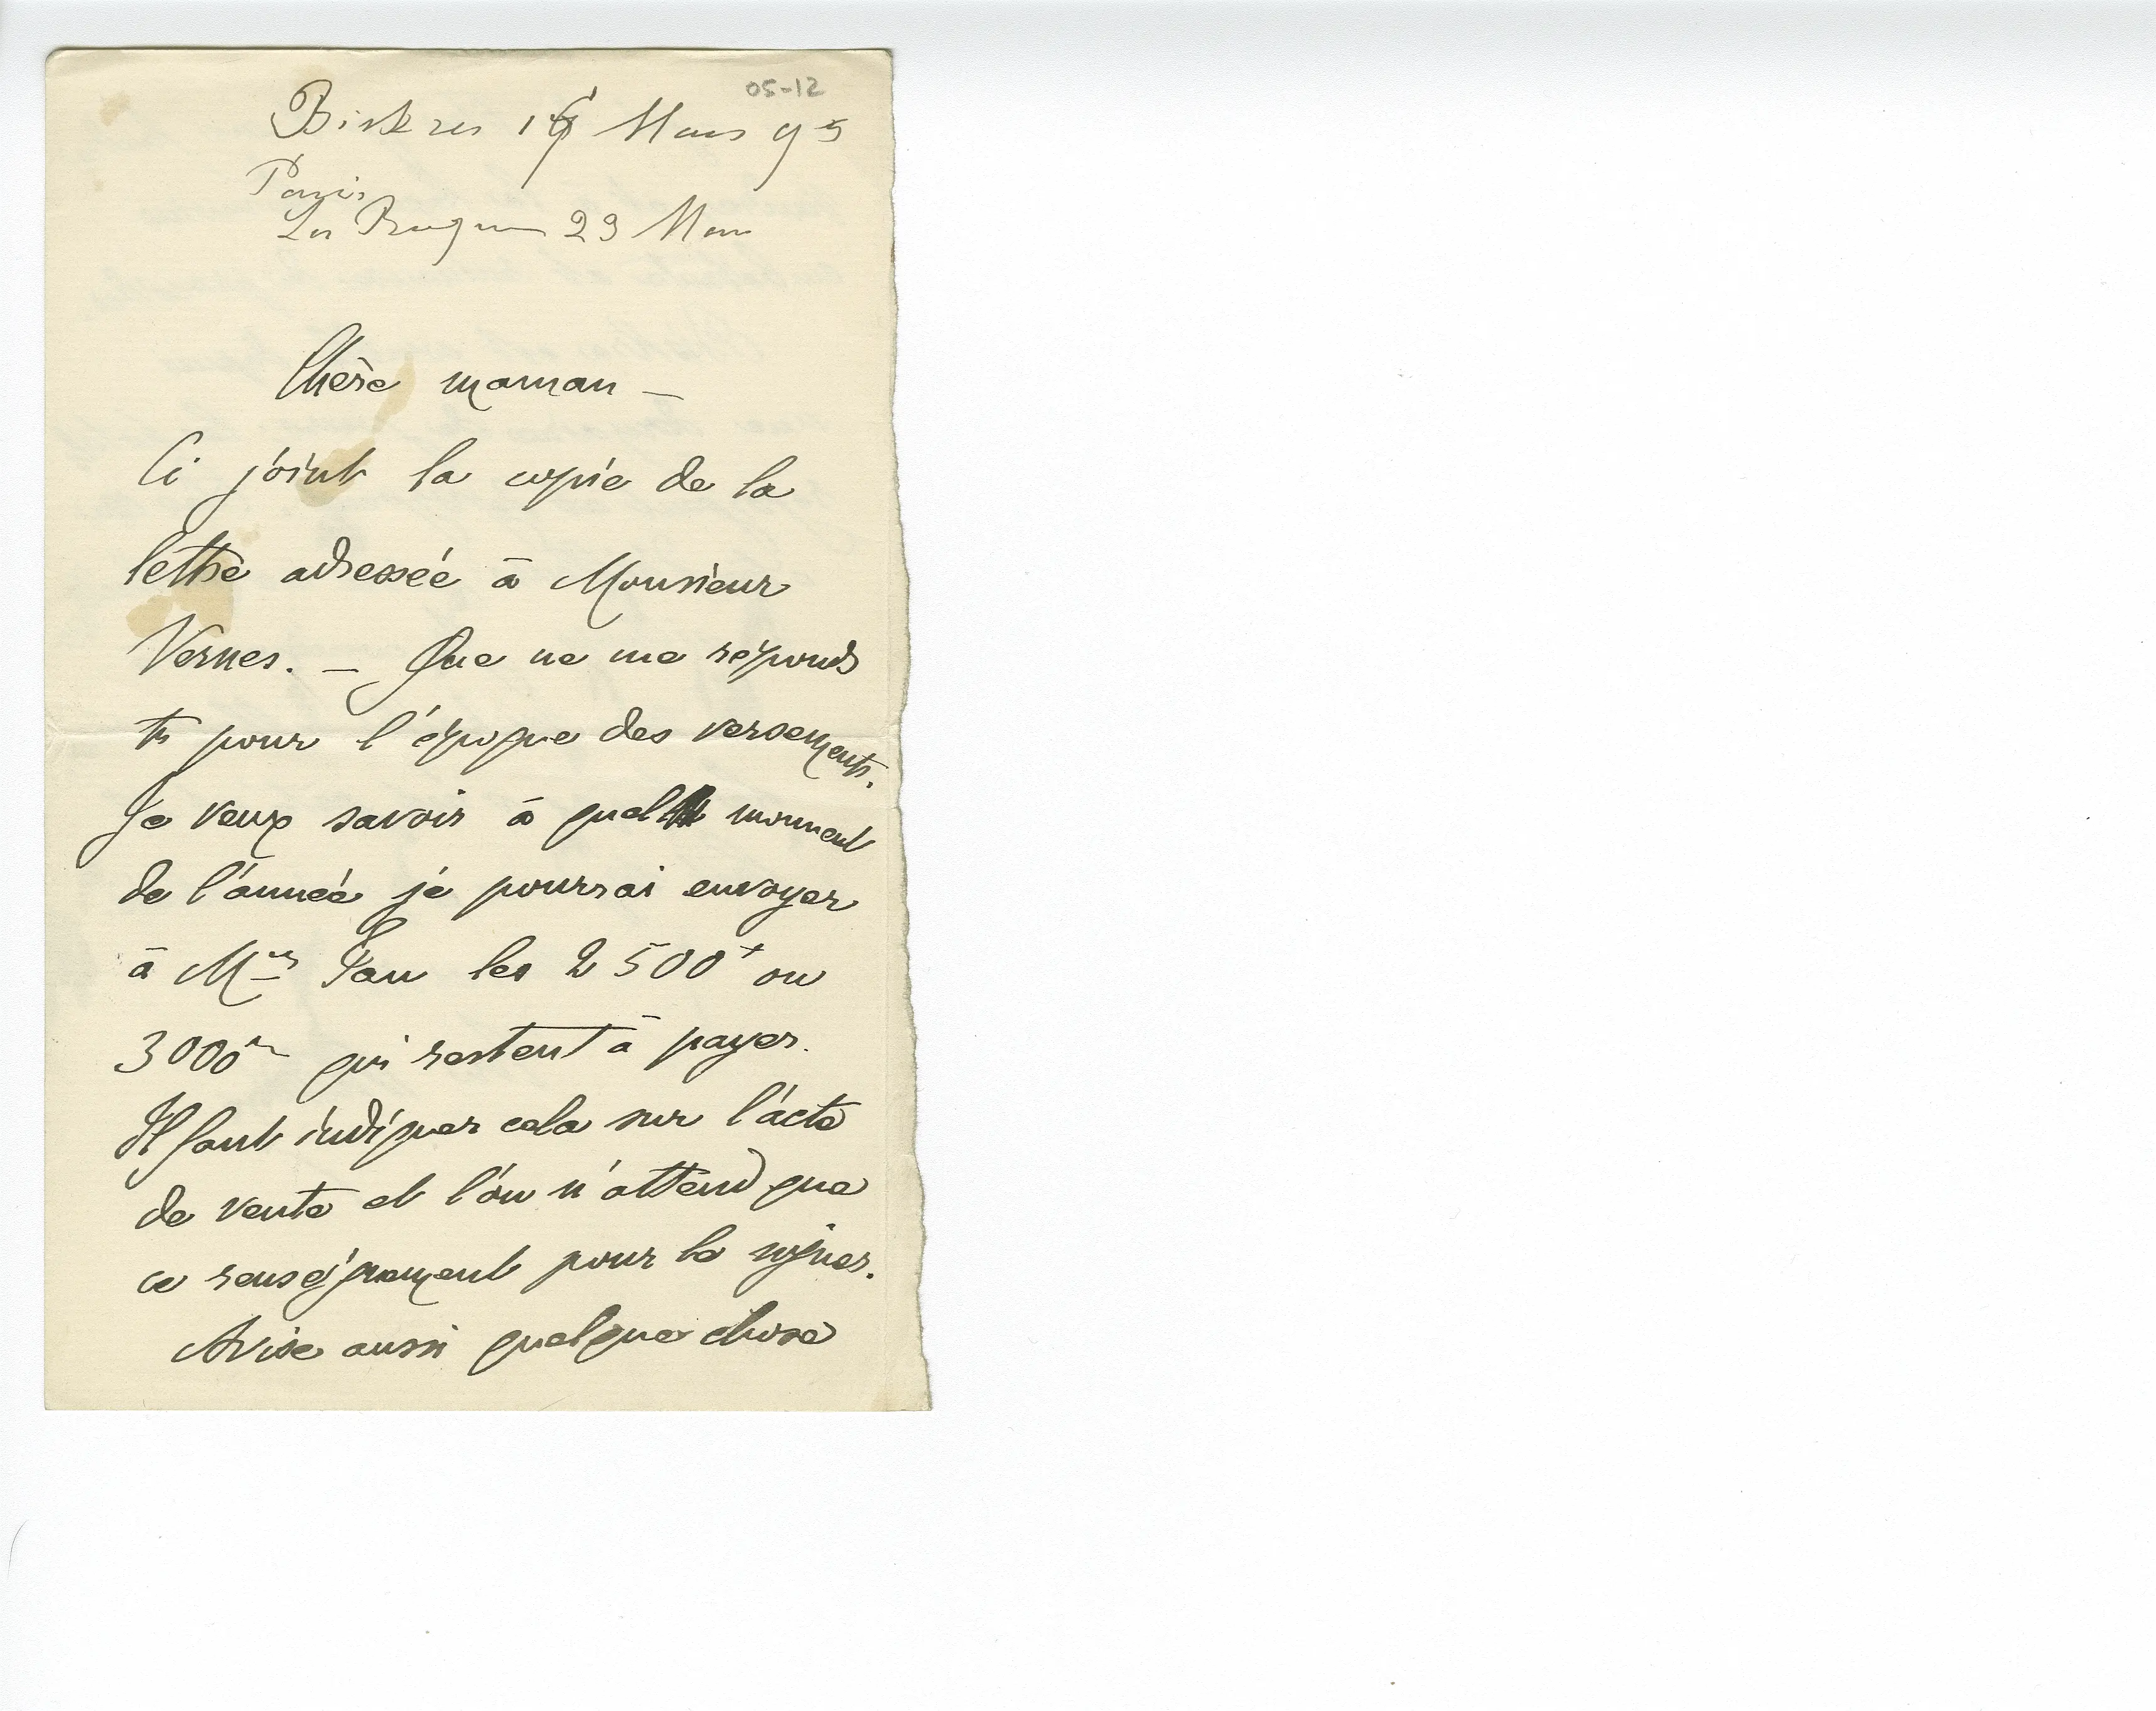 05-12
Biskra 16 Mars 95
Paris
La Roque 29 Mars
Chère maman –
Ci joint la copie de la
lettre adressée à Monsieur
Vernes. – Que ne me réponds
tu pour l'époque des versements.
Je veux savoir à quel moment
de l'année je pourrai envoyer
à M les 2500 ou
3000 qui restent à payer.
Il faut indiquer cela sur l'acte
de vente et l'on n'attend que
ce renseignement pour le signer.
Avise aussi quelque chose